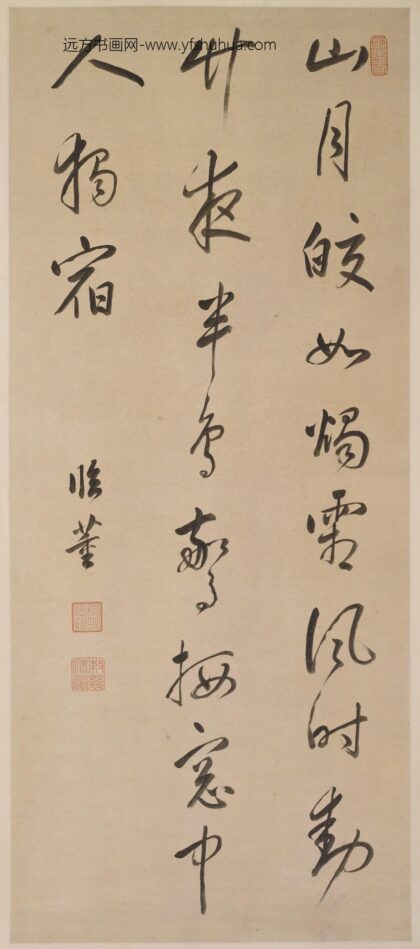 远方书画网-www.yfshuhua.com
山月皎如燭霜風时動
竹夜半鳥驚栖窓中
人獨宿
臨董